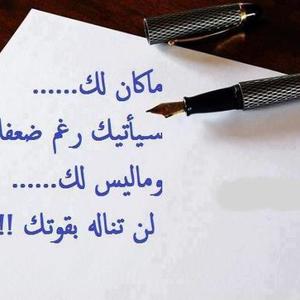 ماكان لك......
سيأتيك رغم ضعفك
وماليس لك......
لن تناله بقوتك !!